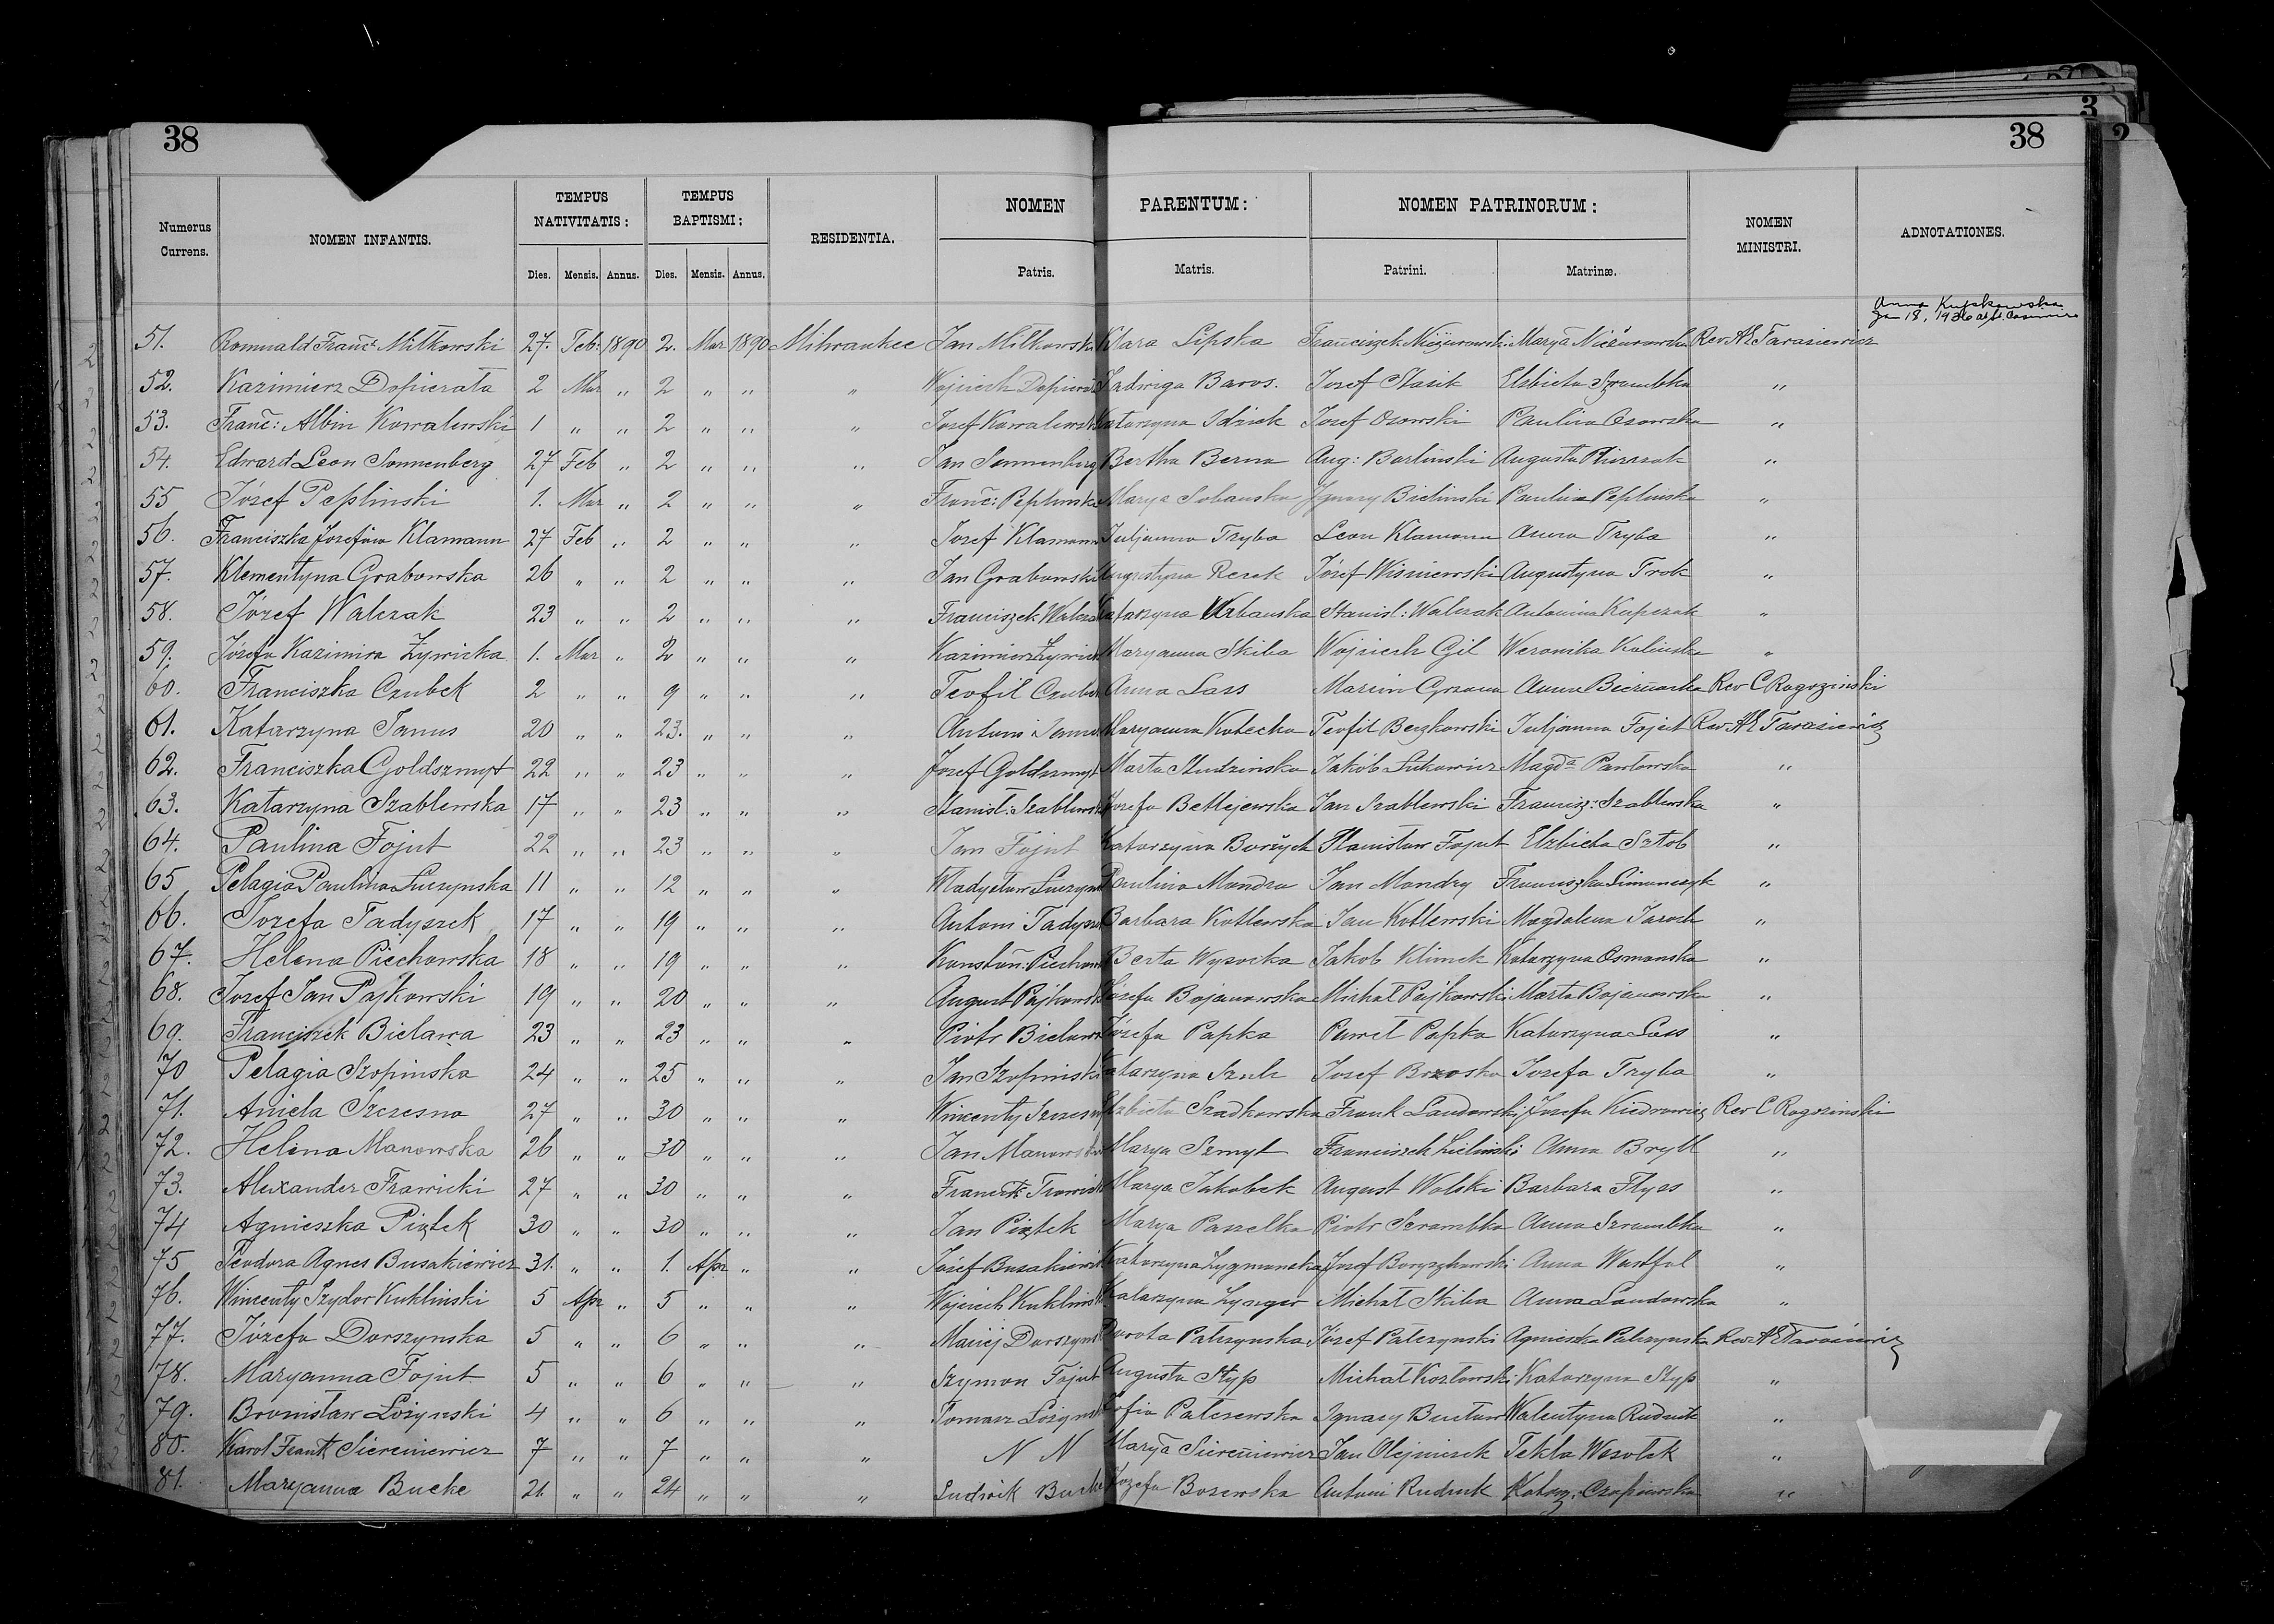 38
38
3
2
Numerus Currens.
NOMEN INFANTIS.
TEMPUS NATIVITATIS:
TEMPUS BAPTISMI:
RESIDENTIA.
NOMEN PARENTUM:
NOMEN PATRINORUM:
NOMEN MINISTRI.
ADNOTATIONES.
Dies. Mensis. Annus. Dies. Mensis. Annus. Patris. Matris. Patrini. Matrinæ.
Anna Kupkowska
Jan 18, 1926 at St. Casimirs
51. Romuald Franc: Miłkowski 27. Feb: 1890 2. Mar 1890 Milwaukee Jan Miłkowski Klara Lipska Franciszek Niżurowski Marya Niżurowska Rev A E Tarasiewicz
52. Kazimierz Dopierała 2 Mar " 2 " " " Wojciech Jadwiga Baros. Jozef Stasik Elzbieta Szrambka "
53. Franc: Albin Kowalewski 1 " " 2 " " " Jozef Kowalewski Katarzyna Idziak Jozef Osowski Paulina Osowska "
54. Edward Leon Sonnenberg 27 Feb " 2 " " " Jan Sonnenberg Bertha Berna Aug: Barlinski Augusta "
55 Józef Peplinski 1. Mar " 2 " " " Franc: Peplinski Marya Sobanska Ignacy Bielinski Paulina Peplinska "
56. Franciszka Josefina Klamann 27 Feb " 2 " " " Jozef Klamann Juljanna Tryba Leon Klamann Anna Tryba "
57. Klementyna Grabowska 26 " " 2 " " " Jan Grabowski Augustyna Rezek Józef Wisniewski Augustyna Trok "
58. Józef Walczak 23 " " 2 " " " Franciszek Walczak Katarzyna Urbanska Stanisl: Walczak Antonina Kupczak "
59. Józefa Kazimira Zywicka 1. Mar " 2 " " " Kazimierz Zywicki Maryanna Skiba Wojciech Gil Weronika Kalinska "
60. Franciszka Czubek 2 " " 9 " " " Teofil Czubek Anna Lass Marcin Grzona Anna Rev C Rogozinski
61. Katarzyna Janus 20 " " 23. " " " Antoni Janus Maryanna Kotecka Teofil Berzkowski Juljanna Fojut Rev A E Tarasiewicz
62. Franciszka Goldszmyt 22 " " 23 " " " Jozef Goldszmyt Marta Studzinska Jakób Lukowicz Magda Pawłowska "
63. Katarzyna Szablewska 17 " " 23 " " " Stanisł: Szablewski Jozefa Bettejewska Jan Szablewski Francisz: Szablewska "
64. Paulina Fojut 22 " " 23 " " " Jan Fojut Katarzyna Stanisław Fojut Elzbieta Sztob "
65 Pelagia Paulina Luczynska 11 " " 12 " " " Władysław Luczynski Paulina Mondra Jan Mondry Franciszka Simonczyk "
66. Jozefa Tadyszek 17 " " 19 " " " Antoni Tadyszek Barbara Kotlewska Jan Kotlewski Magdalena Jaroch "
67. Helena Piechowska 18 " " 19 " " " Konstan: Piechowski Berta Wysocka Jakob Klimek Katarzyna Osmanska "
68. Jozef Jan Pajkowski 19 " " 20 " " " August Pajkowski Józefa Bojanowska Michał Pajkowski Marta Bojanowska "
69. Franciszek Bielawa 23 " " 23 " " " Piotr Bielawa Józefa Papka Paweł Papka Katarzyna Lass "
70 Pelagia Szopinska 24 " " 25 " " " Jan Szopinski Katarzyna Szulz Jozef Brzoska Jozefa Tryba "
71. Aniela Szczesna 27 " " 30 " " " Wincenty Szczesny Elzbieta Szadkowska Frank Landowski Jozefa Kiedrowicz Rev C Rogozinski
72. Helena Manowska 26 " " 30 " " " Jan Manowski Marya Szmyt Franciszek Lielinski Anna Bryll "
73. Alexander Trawicki 27 " " 30 " " " Francisk Trawicki Marya Jakobek August Wolski Barbara Flyss "
74 Agnieszka Piątek 30 " " 30 " " " Jan Piątek Marya Paszelka Piotr Szrambka Anna Szrambka "
75 Teodora Agnes Busakiewicz 31. " " 1. Apr " " Józef Busakiewicz Katarzyna Zygmanska Jozef Boryszkowski Anna Westfal "
76. Wincenty Izydor Kuklinski 5 Apr " 5 " " " Wojciech Kuklinski Katarzyna Michał Skiba Anna Landowska "
77. Józefa Dorszynska 5 " " 6 " " " Maciej Dorszynski Dorota Patrzynska Józef Patrzynski Agnieszka Patrzynska Rev A E Tarasiewicz
78. Maryanna Fojut 5 " " 6 " " " Szymon Fojut Augusta Styp Michał Kozłowski Katarzyna Styp "
79. Bronisław Lożynski 4 " " 6 " " " Tomasz Lożynski Zofia Patczewska Ignacy Walentyna Rudnik "
80. Karol Frank Siereniewicz 7 " " 7 " " " N N Marya Siereniewicz Jan Olejniczek Tekla Wesołek "
81. Maryanna Bucke 21. " " 24 " " " Ludwik Bucke Jozefa Bozewska Antoni Rudnik Katarz. Czapiewska "